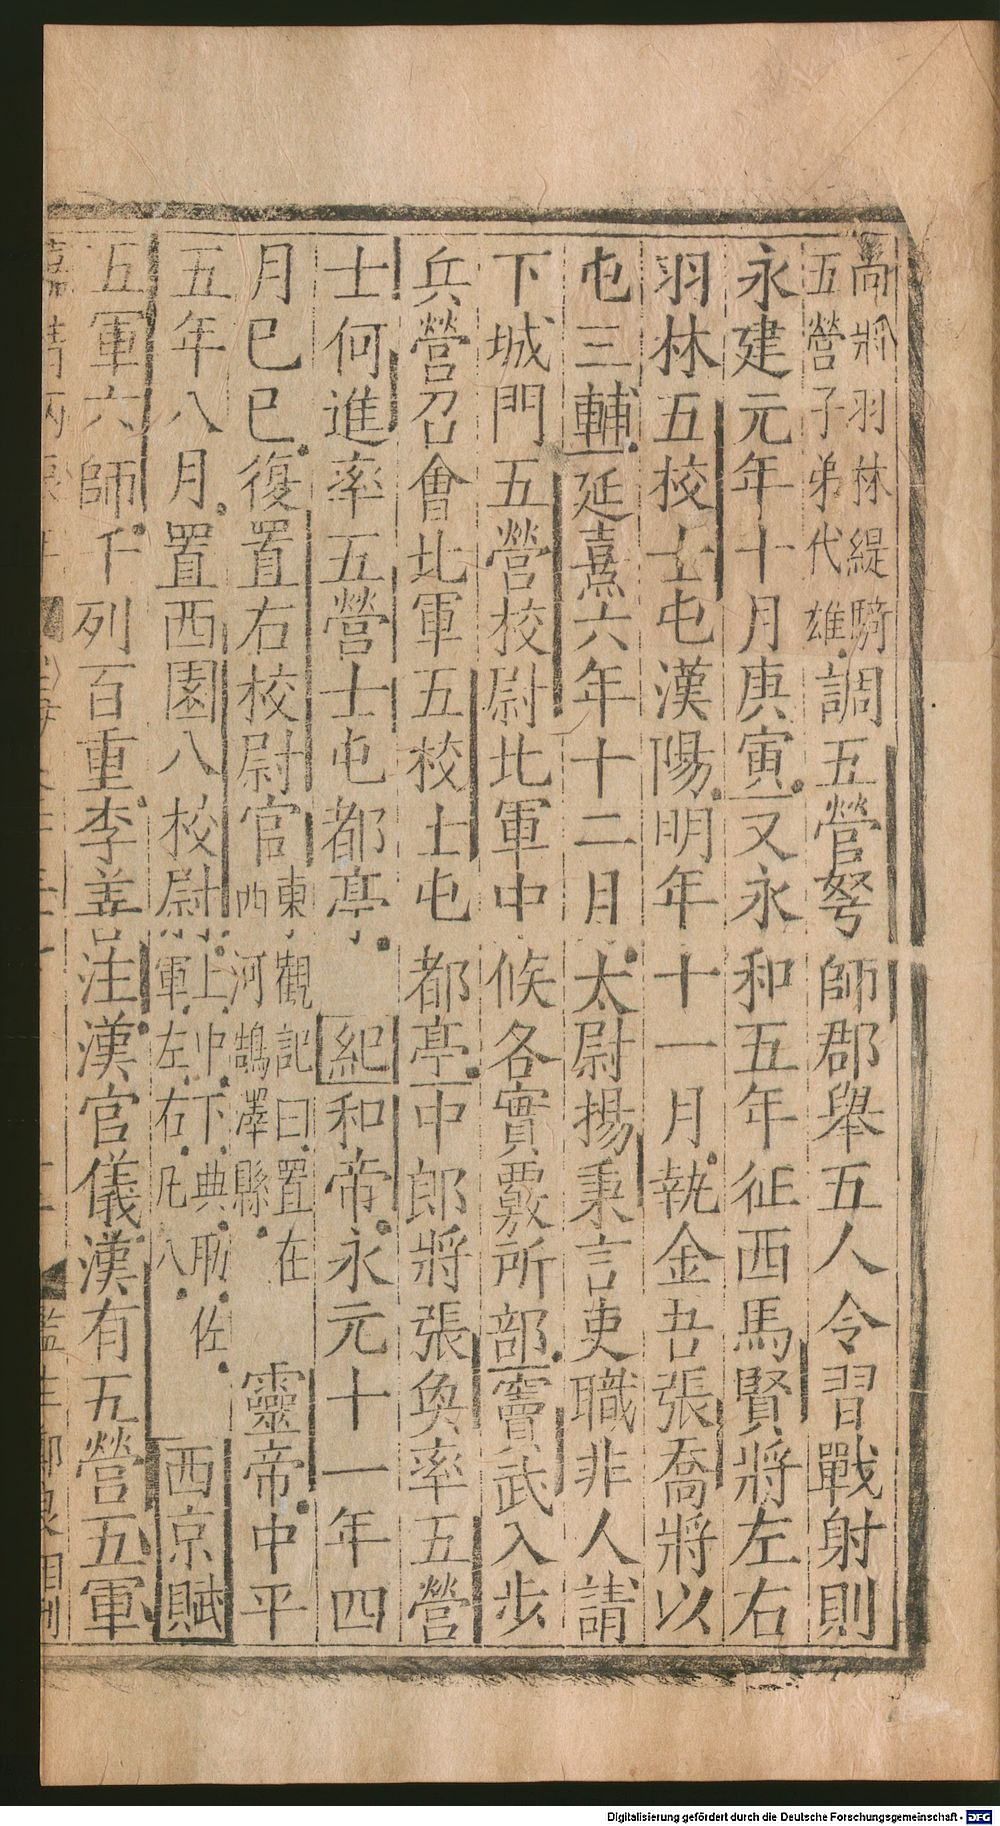 尚將羽林緹騎
五營子弟代雄調五營弩師郡舉五人令習戰射則
永建元年十月庚寅又永和五年征西馬賢將左右
羽林五校士屯漢陽明年十一月執金吾張喬將以
屯三輔延熹六年十二月太尉揚秉言吏職非人請
下城門五營校尉北軍中候各實覈所部竇武入步
兵營召會北軍五校士屯都亭中郎將張奐率五營
士何進率五營士屯都亭紀和帝永元十一年四
月巳巳復置右校尉官東觀記曰置在
西河鵠澤縣靈帝中平
五年八月置西園八校尉上中下典助佐
軍左右凡八西京賦
五軍六師千列百重李善注漢官儀漢有五營五軍
Digitalisierung gefördert durch die Deutsche Forschungsgemeinschaft - DFG